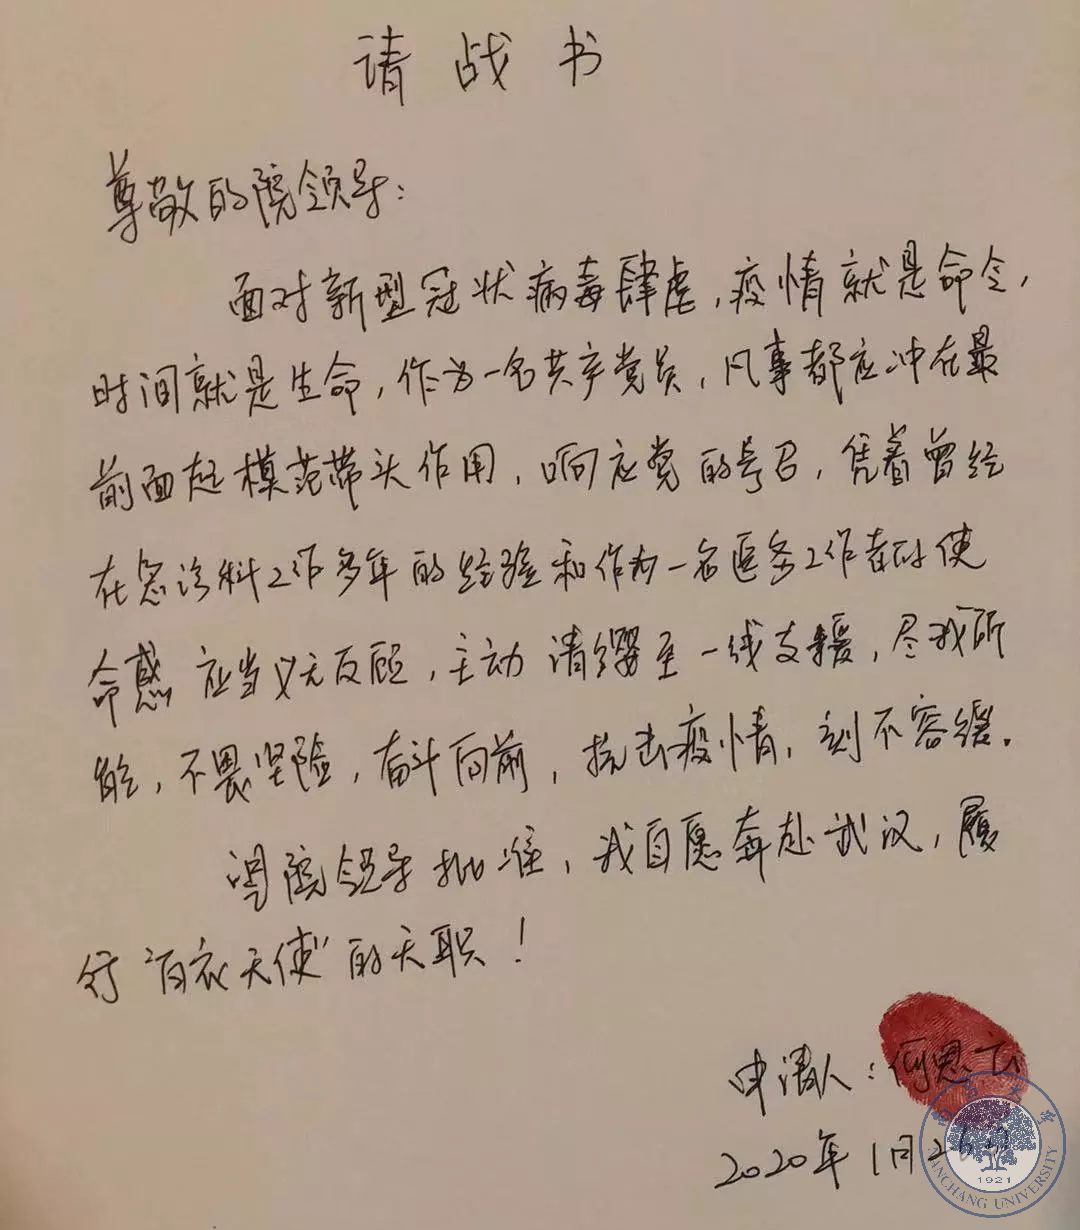 请战书
尊敬的院领导：
面对新型冠状病毒肆虐，疫情就是命令，
时间就是生命，作为一名共产党员，凡事都应冲在最
前面起模范带头作用，响应党的号召，凭着曾经
在急诊科工作多年的经验和作为一名医务工作者的使
命感应当义无反顾，主动请缨至一线支援，尽我所
能，不畏艰险，奋斗向前，抗击疫情，刻不容缓。
望院领导批准，我自愿奔赴武汉，履
行“白衣天使”的天职！
申请人：何恩
2020年1月26日
南昌大学
NANCHANG UNIVERSITY
1921